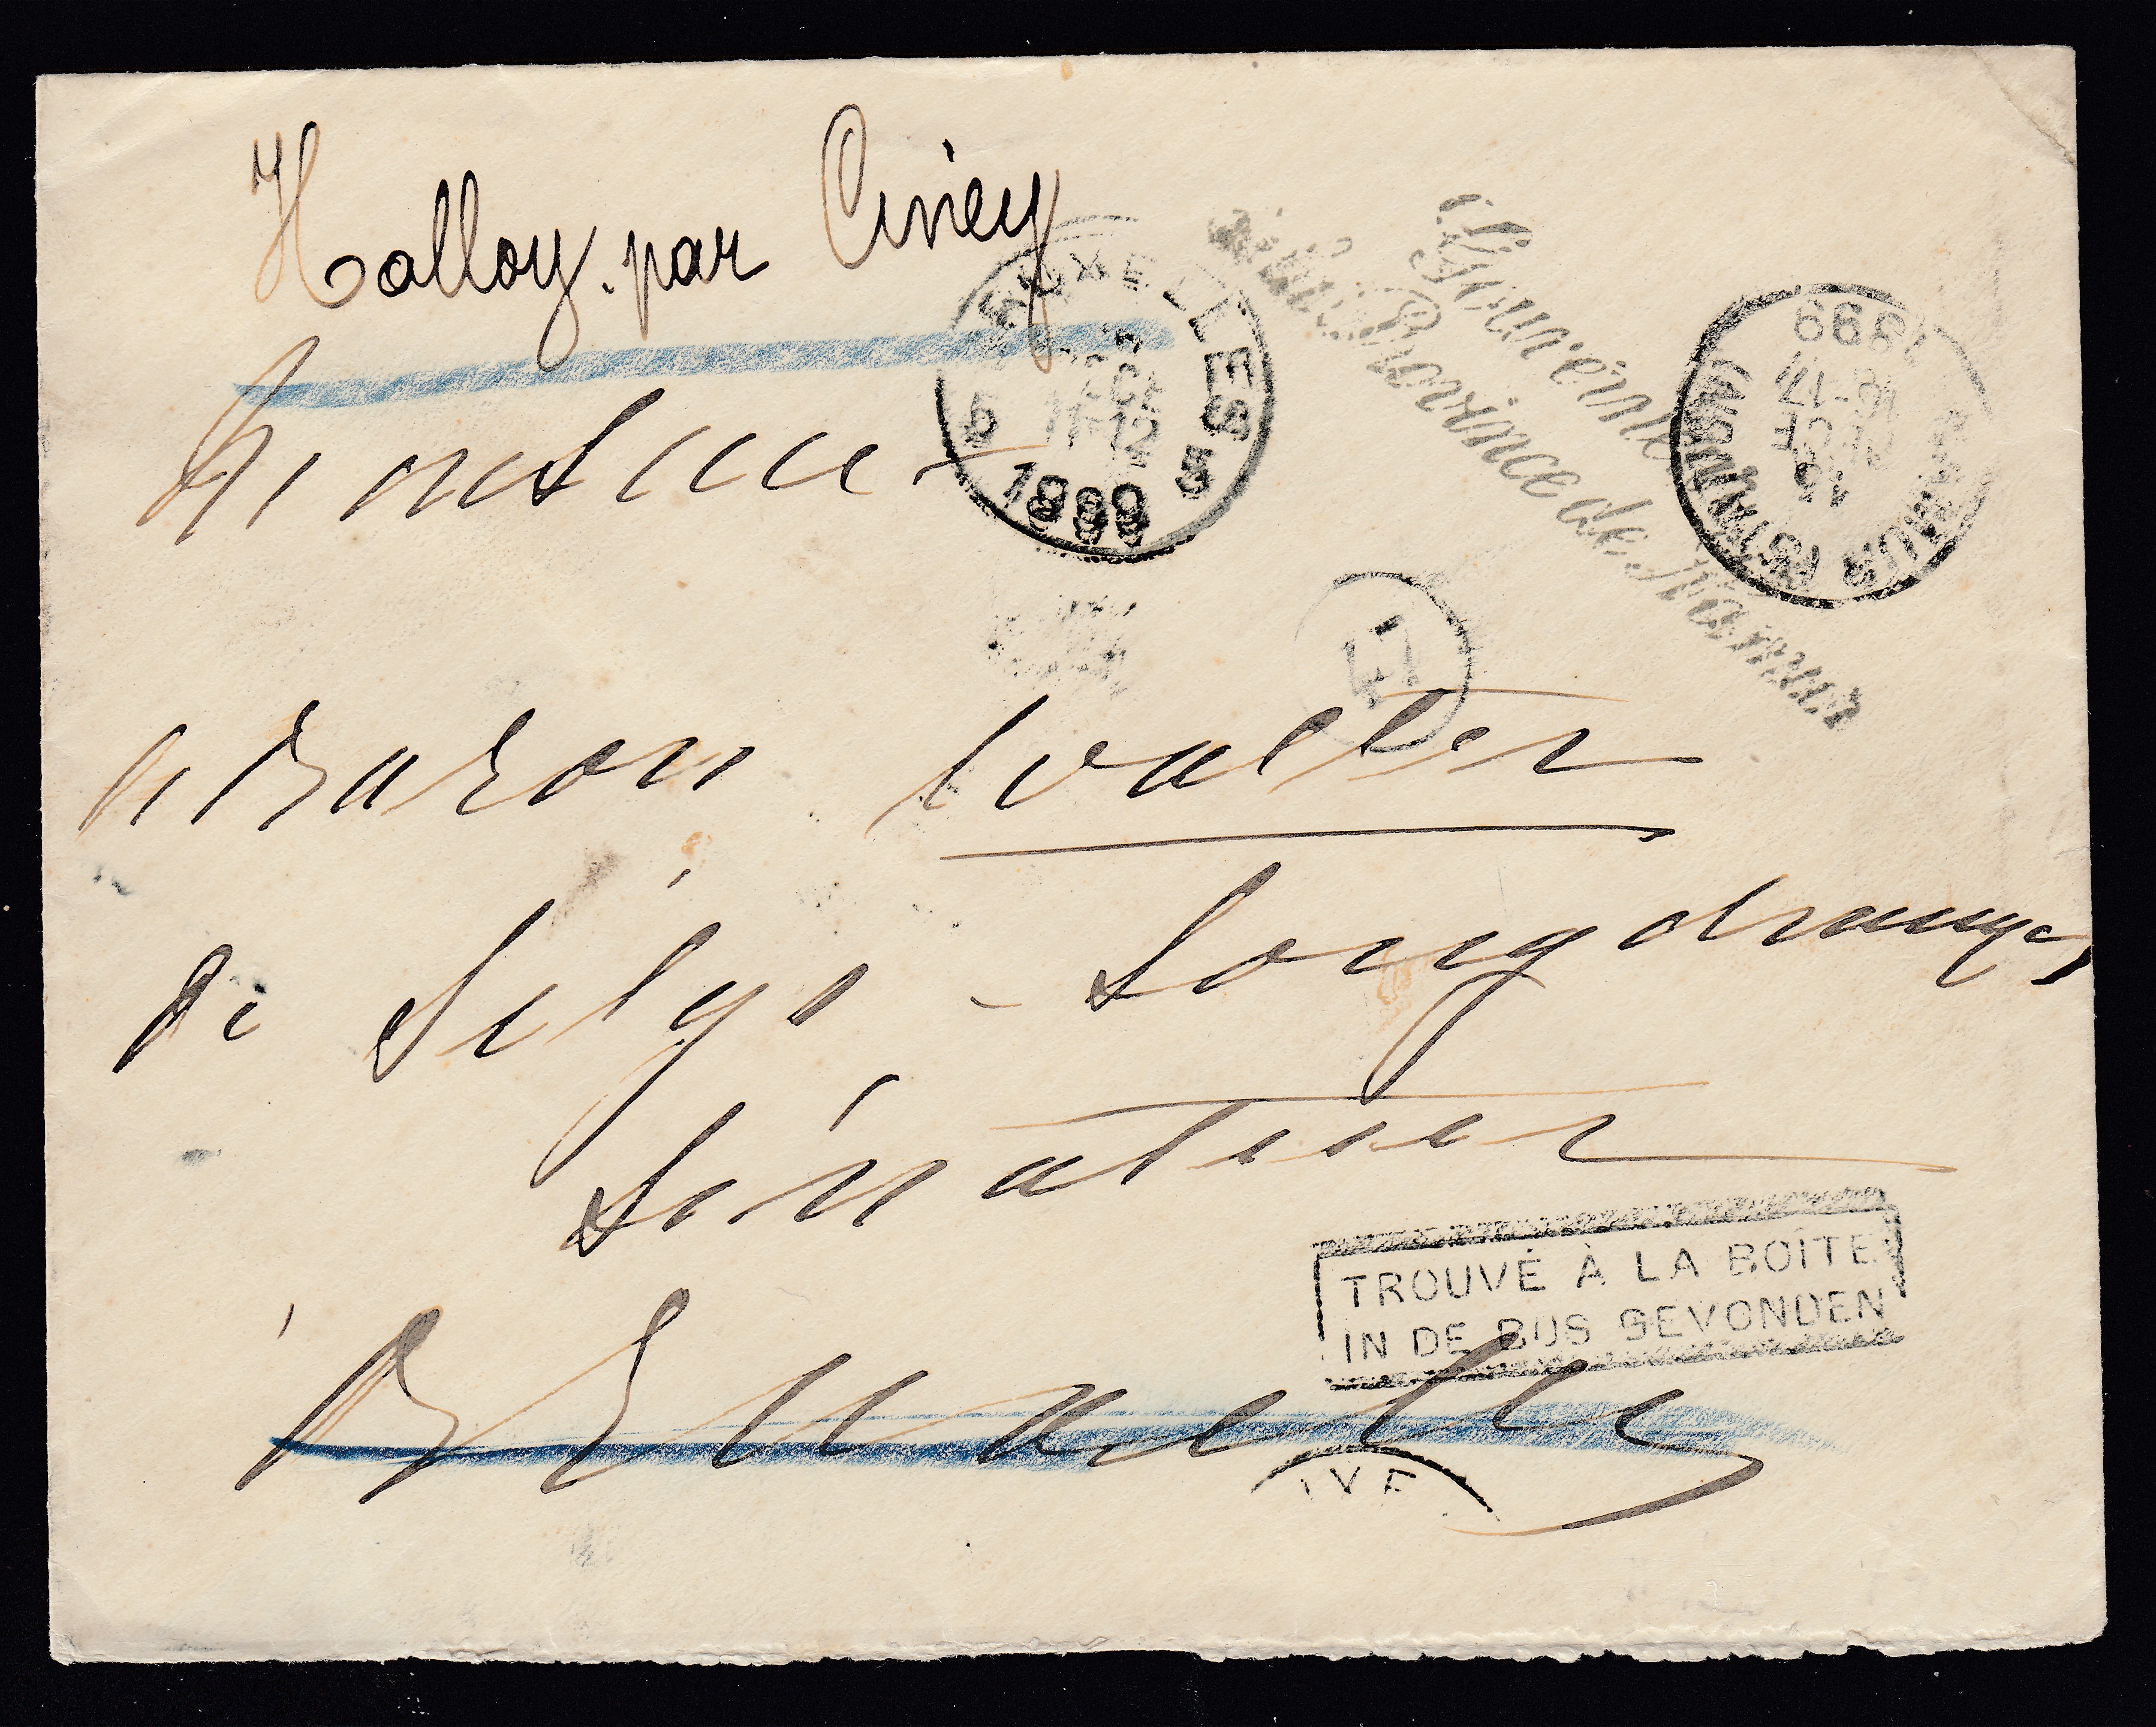 Halloy. par Ciney
BRUXELLES
11-12
5 5
1899
Gouverneur
de la Province de Namur
NAMUR (STATION)
1899
Monsieur
le Baron Walter
de Selys-Longchamps
Sénateur
à Bruxelles
TROUVÉ À LA BOÎTE
IN DE BUS GEVONDEN